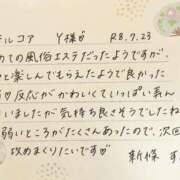 ドルコア Y様♡ R8.7.23
めての風俗エステだったようですが、
と楽しんでもらえたようで良かった
♡反応がかわいくていっぱい弄ん
いましたが気持ち良さそうでしたね
弱いところがたくさんあったので、次回
攻めまくりたいです♡
新條 す